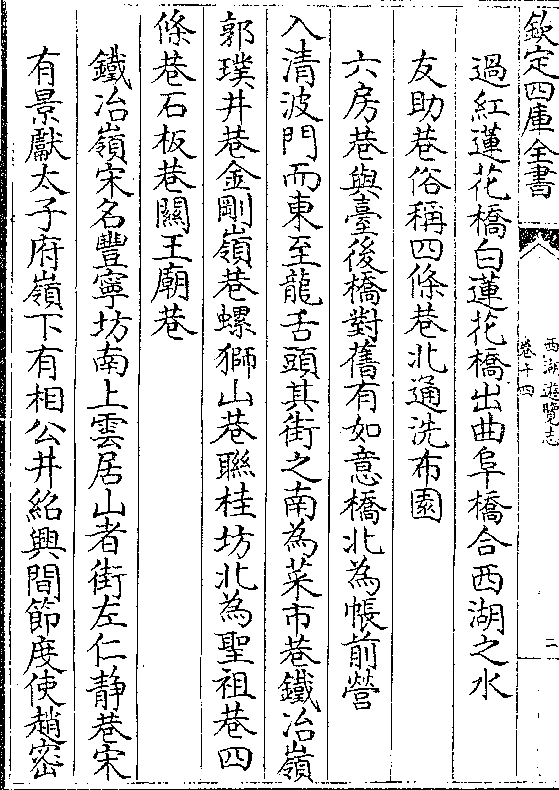 欽定四庫全書
西湖遊覽志
卷十四
二
過紅蓮花橋白蓮花橋出曲阜橋合西湖之水
友助巷俗稱四條巷北通洗布園
六房巷與臺後橋對舊有如意橋北為帳前營
入清波門而東至龍舌頭其街之南為菜市巷鐵冶嶺
郭璞井巷金剛嶺巷螺獅山巷聯桂坊北為聖祖巷四
條巷石板巷關王廟巷
鐵冶嶺宋名豐寧坊南上雲居山者街左仁靜巷宋
有景獻太子府嶺下有相公井紹興間節度使趙密